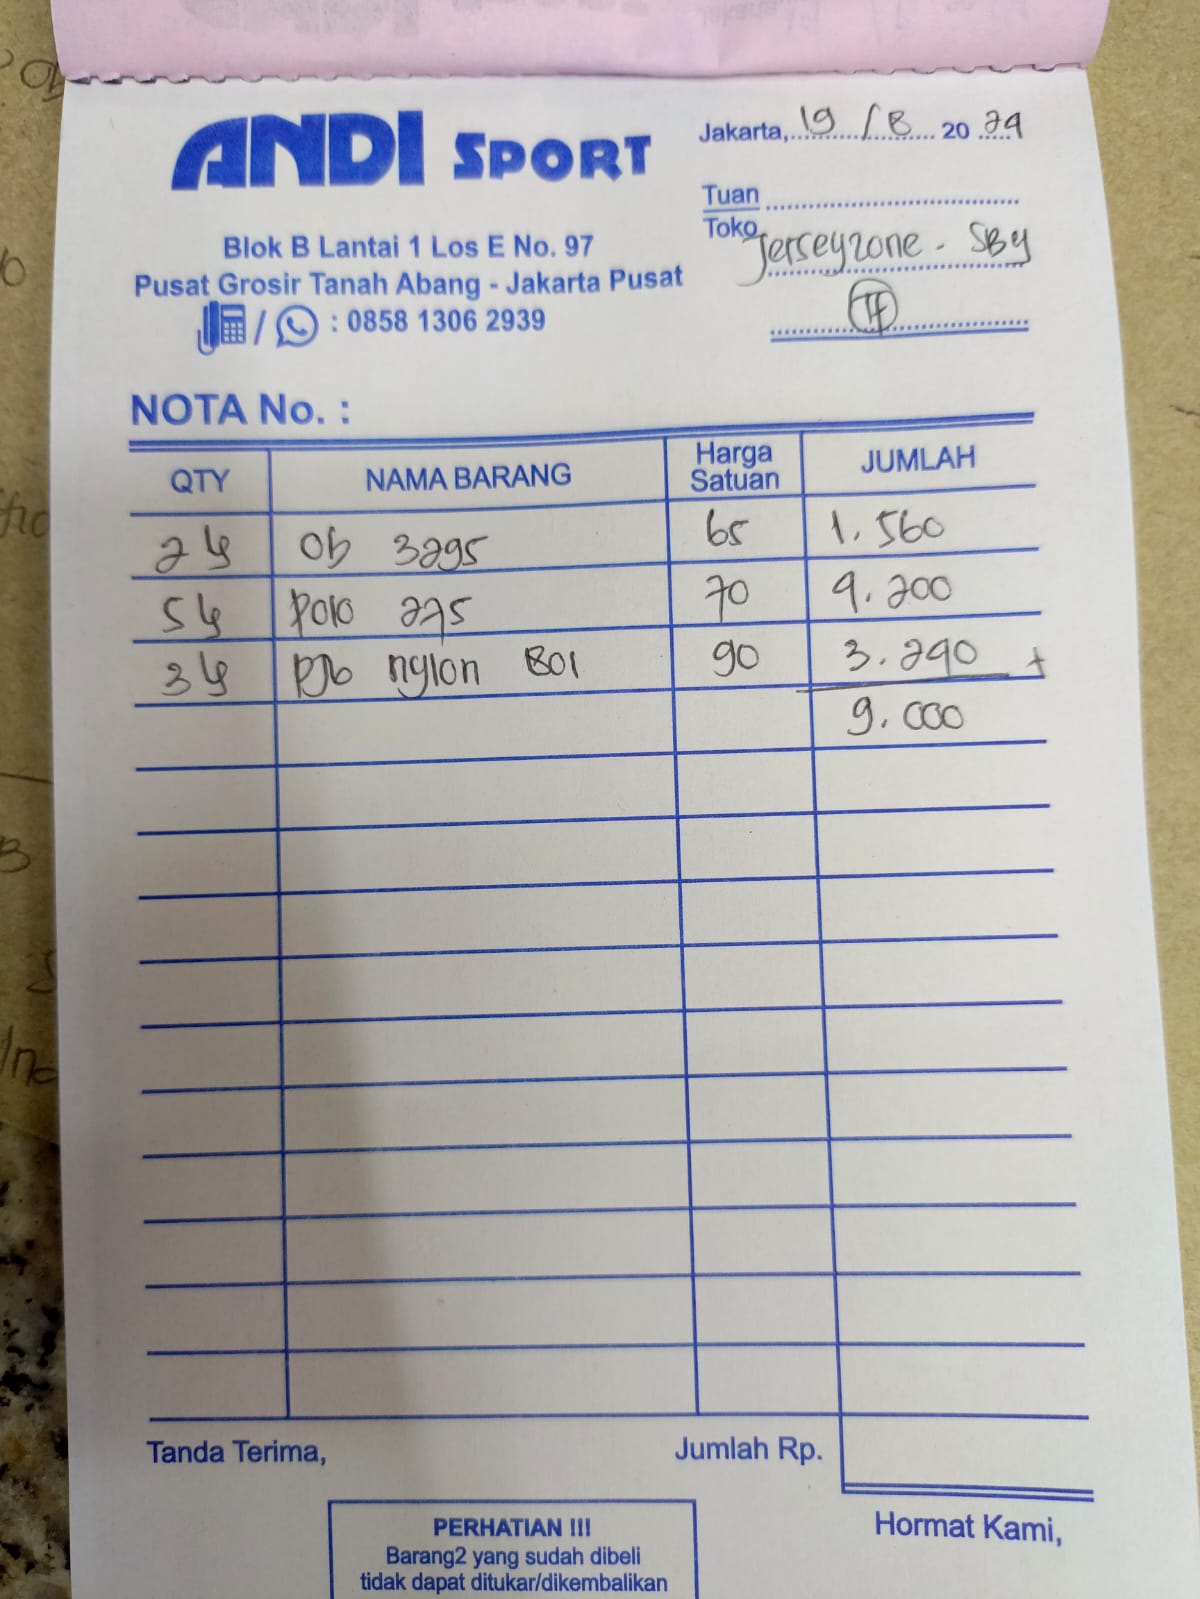 ANDI SPORT
Jakarta, 19 / 8 2024
Blok B Lantai 1 Los E No. 97
Pusat Grosir Tanah Abang - Jakarta Pusat
/ : 0858 1306 2939
Tuan
Toko Jerseyzone - SBY
TF
NOTA No. :
QTY NAMA BARANG Harga Satuan JUMLAH
2 ls Ob 3295 65 1.560
5 ls Polo 275 70 4.200
3 ls nylon 801 90 3.240 +
9.000
Tanda Terima,
Jumlah Rp.
Hormat Kami,
PERHATIAN !!!
Barang2 yang sudah dibeli
tidak dapat ditukar/dikembalikan